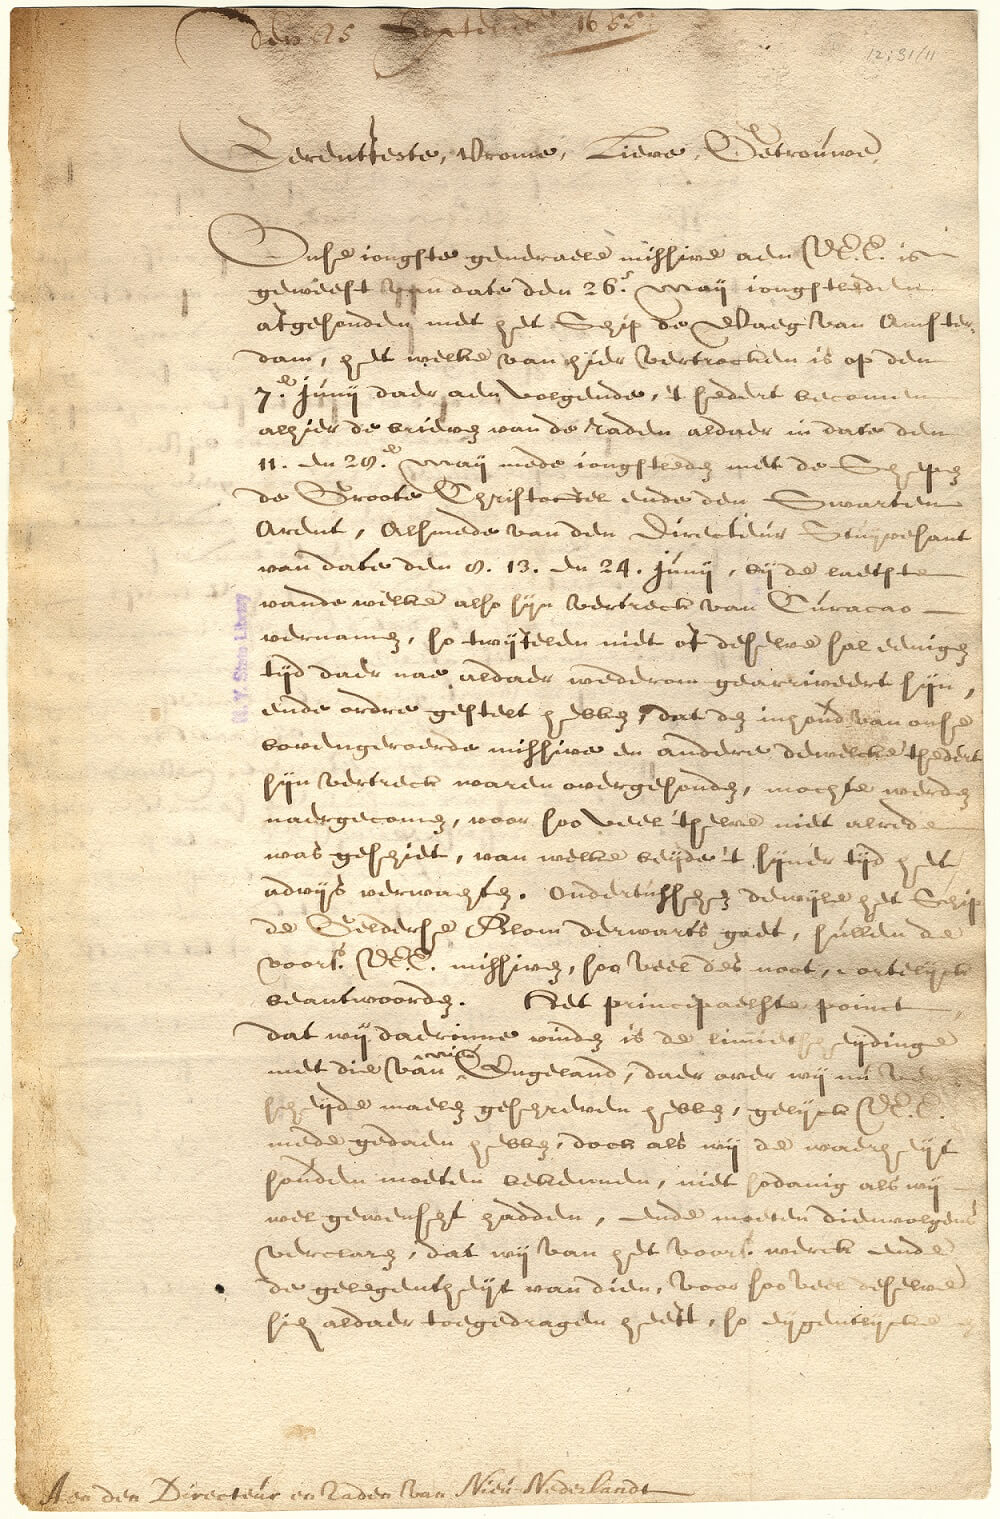 den 25 September 1655
12:31/11
Eerentfeste, Vrome, Lieve, Getrouwe,
Onse jongste generaele missive aen UE.E. is
geweest van date den 26.e May jongstleden
afgesonden met het Schip de Waeg van Amster-
dam, het welke van hier vertrocken is op den
7.e Junij daer aen volgende, 't sedert becomen
alhier de brieven van de Raden aldaer in date den
11. en 28.e May mede jongstleden met de Schepen
de Groote Christoffel ende den Swarten
Arent, Alsmede van den Directeur Stuyvesant
van date den 8. 13. en 24. Junij, bij de laetste
vande welke also sijn vertreck van Curacao
vernamen, so twyfelen niet of deselve sal eenigen
tijd daer nae aldaer wederom gearriveert sijn,
ende ordre gestelt hebben, dat den inhoud van onse
bovengeroerde missive en andere dewelcke tsedert
sijn vertreck waren overgesonden, mochte werden
naergecomen, voor soo veel 'tselve niet alrede
was geschiet, van welke beyde 't sijner tijd het
advijs verwachten. Ondertusschen dewijle het Schip
de Geldersche Blom derwarts gaet, sullen de
voors. UE.E. missiven, soo veel des noot, cortelijck
beantwoorden. Het principaelste poinct
dat wij daerinne vinden is de limietscheydinge
met die van nieu Engeland, daer over wij nu ver-
scheyde maelen geschreven hebben, gelijck UE.E.
mede gedaen hebben, doch als wij de waerheyt
souden moeten bekennen, niet sodanig als wij
wel gewenscht hadden, ende moeten dienvolgens
verclaren, dat wij van het voors. werck ende
de gelegentheyt van dien, voor soo veel deselve
sich aldaer toegedragen heeft, so eygentlijcke
N.Y. State Library
Aen den Directeur en Raden van Nieu Nederlandt